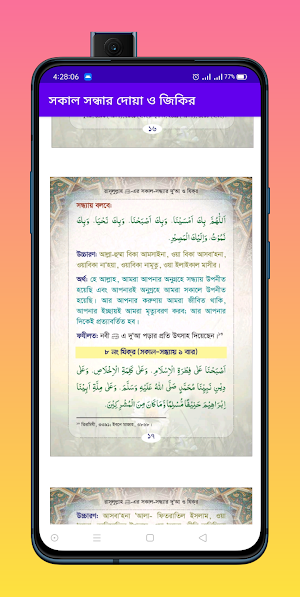 4:28:06
77%
সকাল সন্ধার দোয়া ও জিকির
১৬
রাসূলুল্লাহ ﷺ-এর সকাল-সন্ধ্যার দু‘আ ও যিকর
সন্ধ্যায় বলবে:
اَللّٰهُمَّ بِكَ أَمْسَيْنَا، وَبِكَ أَصْبَحْنَا، وَبِكَ نَحْيَا، وَبِكَ
نَمُوْتُ، وَإِلَيْكَ الْمَصِيْرُ.
উচ্চারণ: আল্লা-হুম্মা বিকা আমসাইনা, ওয়া বিকা আসবা'হনা,
ওয়াবিকা না'হয়া, ওয়াবিকা নামূতু, ওয়া ইলাইকাল মাসীর।
অর্থ: হে আল্লাহ, আমরা আপনার অনুগ্রহে সন্ধ্যায় উপনীত
হয়েছি এবং আপনারই অনুগ্রহে আমরা সকালে উপনীত
হয়েছি। আর আপনার করুণায় আমরা জীবিত থাকি,
আপনার ইচ্ছায়ই আমরা মৃত্যুবরণ করব; আর আপনার
দিকেই প্রত্যাবর্তিত হব।
ফযীলত: নবী ﷺ এ দু'আ পড়ার প্রতি উৎসাহ দিয়েছেন।
৮ নং যিকর (সকাল-সন্ধ্যায় ১ বার)
أَصْبَحْنَا عَلَى فِطْرَةِ الْإِسْلَامِ، وَعَلَى كَلِمَةِ الْإِخْلَاصِ، وَعَلَى
دِيْنِ نَبِيِّنَا مُحَمَّدٍ صَلَّى اللهُ عَلَيْهِ وَسَلَّمَ، وَعَلَى مِلَّةِ أَبِيْنَا
إِبْرَاهِيْمَ حَنِيْفًا مُسْلِمًا وَمَا كَانَ مِنَ الْمُشْرِكِيْنَ.
তিরমিযী, ৩৩৯১; ইবনে মাজাহ, ৩৮৬৮।
১৭
রাসূলুল্লাহ ﷺ-এর সকাল-সন্ধ্যার দু‘আ ও যিকর
উচ্চারণ: আসবা'হনা 'আলা- ফিতরাতিল ইসলাম, ওয়া